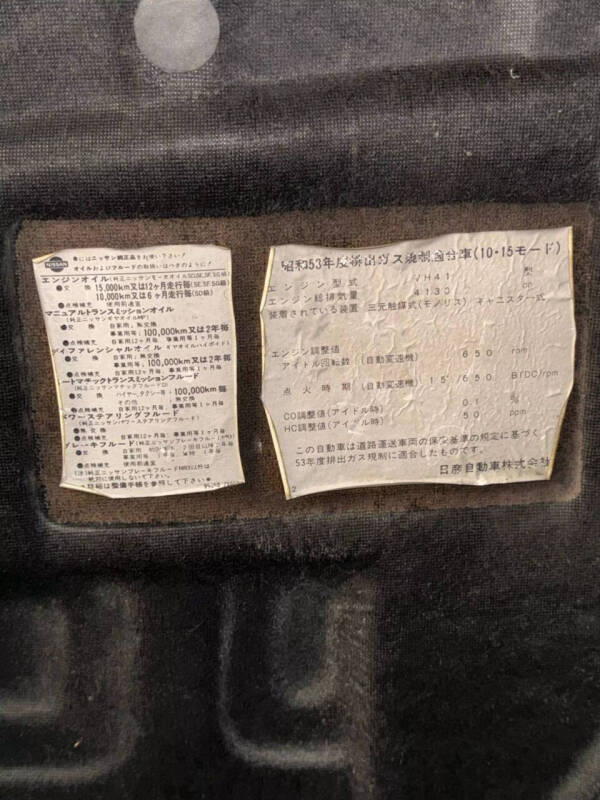 NISSAN
オイルおよびフルードの
エンジンオイル(純正ニッサンモーターオイルSE,SF,SG級)
●交 換 15,000km又は12ヶ月走行毎(SE,SF,SG級)
10,000km又は6ヶ月走行毎(SD級)
●点検補充 使用前適宜
マニュアルトランスミッションオイル
●交 換 自家用;無交換
事業用等;100,000km又は2年毎
●点検補充 自家用12ヶ月毎、事業用等1ヶ月毎
ディファレンシャルオイル
●交 換 自家用;無交換
事業用等;100,000km又は2年毎
●点検補充 自家用12ヶ月毎、事業用等1ヶ月毎
ートマチックトランスミッションフルード
(純正ニッサンマチックフルードD)
●交 換 ハイヤー,タクシー等…100,000km毎
その他 ;無交換
●点検補充 自家用12ヶ月毎、事業用等1ヶ月毎
パワーステアリングフルード
(純正ニッサンパワーステアリングフルード)
●無交換
●点検補充 自家用12ヶ月毎、事業用等1ヶ月毎
ブレーキフルード(純正ニッサンブレーキフルード
●交 換 自家用
●点検補充 使用前適宜
(注)純正ニッサンブレーキフルード 以外は
絶対に使用しないで下さい。
詳細は整備手帳を参照して下さい●
昭和53年度排出ガス規制適合車(10・15モード)
エンジン型式 VH41 型
エンジン総排気量 4130 cc
装着されている装置 三元触媒式(モノリス) キャニスター式
エンジン調整値
アイドル回転数 (自動変速機) 650 rpm
点火時期 (自動変速機) 15°/650 BTDC/rpm
CO調整値(アイドル時) 0.1 %
HC調整値(アイドル時) 50 ppm
この自動車は道路運送車両の保安基準の規定に基づく
53年度排出ガス規制に適合したものです。
日産自動車株式会社
2